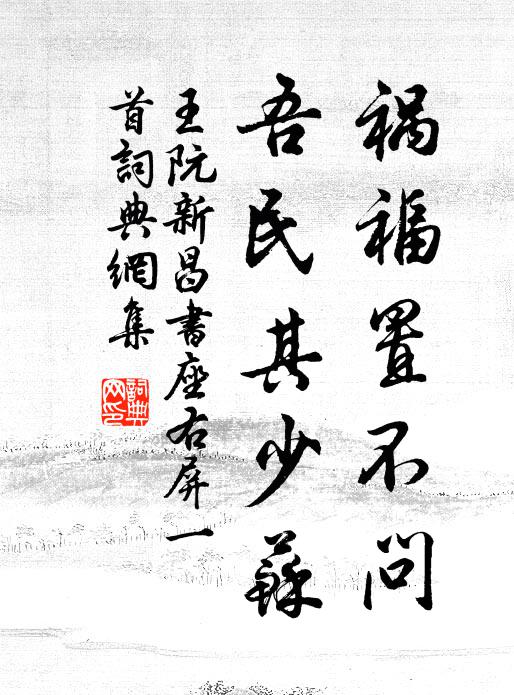 禍福置不問
吾民其少蘇
王阮新昌書座右屏一
首詞典網集
詞典
网印